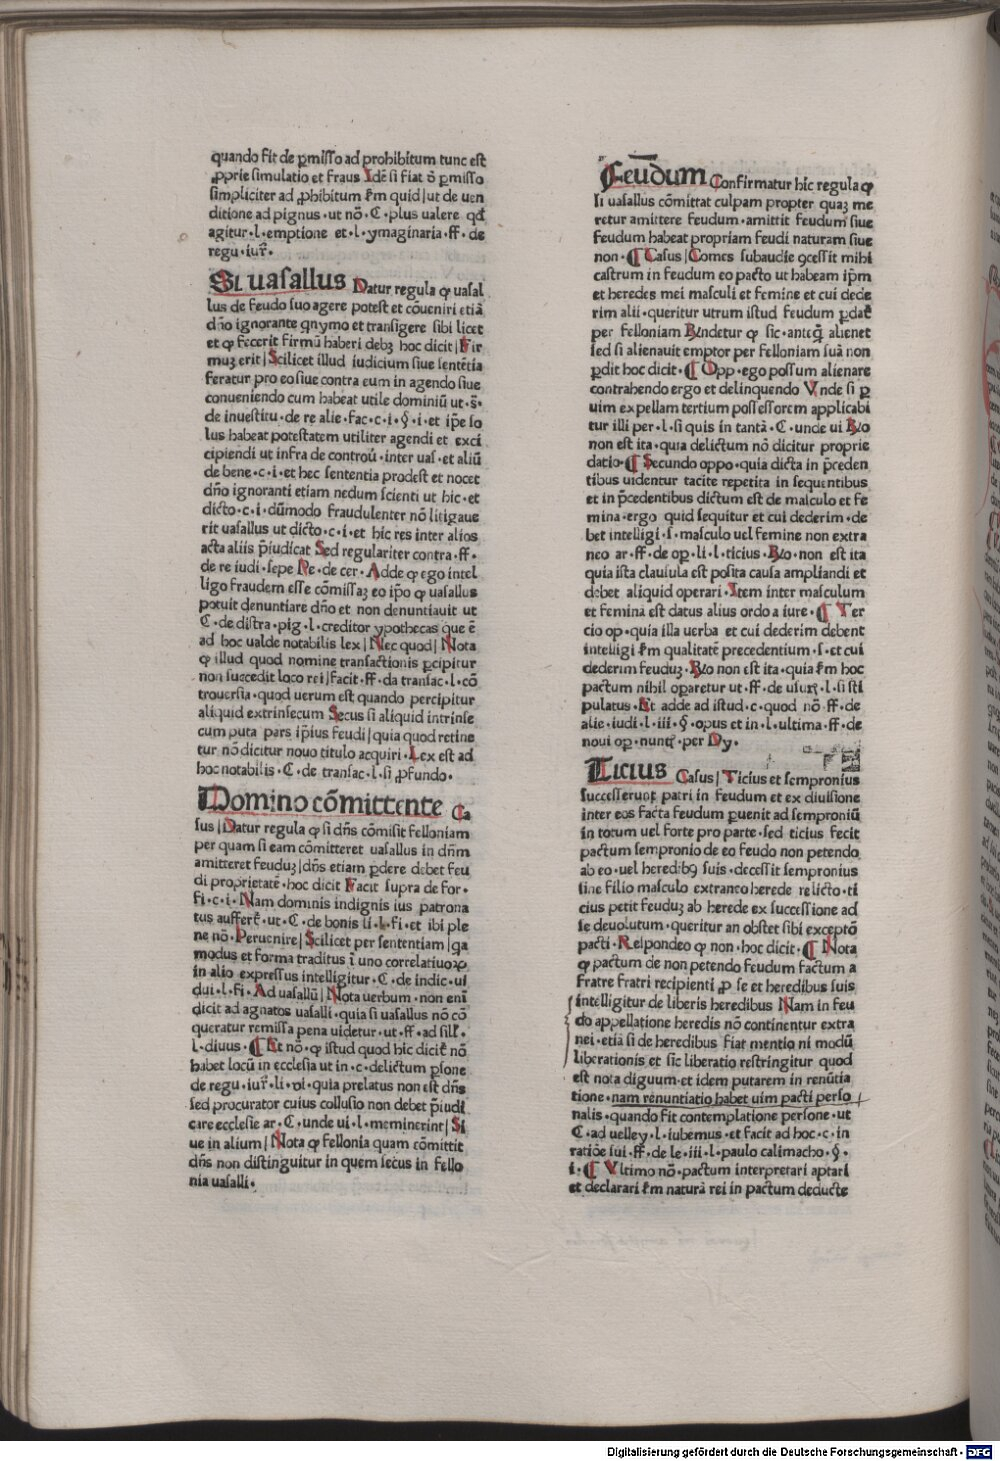 quando fit de ꝑmisso ad prohibitum tunc est
ꝓprie simulatio et fraus Idē si fiat ō ꝑmisso
simpliciter ad ꝓhibitum ẜm quid|ut de uen
ditione ad pignus·ut nō·C·plus ualere qđ
agitur·l·emptione et·l·ymaginaria·ff·de
regu·iur̄·
Si uasallus Datur regula ꝙ uasal
lus de feudo suo agere potest et cōueniri etiā
dn̄o ignorante qnymo et transigere sibi licet
et ꝙ fecerit firmū haberi debꝫ hoc dicit|Fir
muꝫ erit|Scilicet illud iudicium siue sentētia
feratur pro eo siue contra eum in agendo siue
conueniendo cum habeat utile dominiū ut·s̄·
de inuestitu·de re alie·fac·c·i·§·i·et ip̄e so
lus habeat potestatem utiliter agendi et exci
cipiendi ut infra de controū·inter uas·et aliū
de bene·c·i·et hec sententia prodest et nocet
dn̄o ignoranti etiam nedum scienti ut hic·et
dicto·c·i·dūmodo fraudulenter nō litigaue
rit uasallus ut dicto·c·i·et hic res inter alios
acta aliis p̄iudicat Sed regulariter contra·ff·
de re iudi·sepe Ne·de cer·Adde ꝙ ego intel
ligo fraudem esse cōmissaꝫ eo ip̄o ꝙ uasallus
potuit denuntiare dn̄o et non denuntiauit ut
C·de distra·pig·l·creditor ypothecas que ē
ad hoc ualde notabilis lex|Nec quod|Nota
ꝙ illud quod nomine transactionis ꝑcipitur
non succedit loco rei|facit·ff·da transac·l·cō
trouersia·quod uerum est quando percipitur
aliquid extrinsecum Secus si aliquid intrinse
cum puta pars ip̄ius feudi|quia quod retine
tur nō dicitur nouo titulo acquiri·Lex est ad
hoc notabilis·C·de transac·l·si ꝓfundo·
Domino cōmittente Ca
sus|Datur regula ꝙ si dn̄s cōmisit felloniam
per quam si eam cōmitteret uasallus in dn̄m
amitteret feuduꝫ|dn̄s etiam ꝑdere debet feu
di proprietatē·hoc dicit Facit supra de for·
fi·c·i·Nam dominis indignis ius patrona
tus auffert̄·ut·C·de bonis li·l·fi·et ibi ple
ne nō·Peruenire|Scilicet per sententiam|qa
modus et forma traditus ī uno correlatiuoꝝ
in alio expressus intelligitur·C·de indic·ui
dui·l·fi·Ad uasallū|Nota uerbum·non enī
dicit ad agnatos uasalli·quia si uasallus nō cō
queratur remissa pena uidetur·ut·ff·ad sill̄·
l·diuus·¶ Et nō·ꝙ istud quod hic dicit̄ nō
habet locū in ecclesia ut in·c·delictum ꝑsone
de regu·iur̄·li·vi·quia prelatus non est dn̄s
sed procurator cuius collusio non debet p̄iudi
care ecclesie ar·C·unde ui·l·meminerint|Si
ue in alium|Nota ꝙ fellonia quam cōmittit
dn̄s non distinguitur in quem secus in fello
nia uasalli·
Feudum Confirmatur hic regula ꝙ
si uasallus cōmittat culpam propter quaꝫ me
retur amittere feudum·amittit feudum siue
feudum habeat propriam feudi naturam siue
non·¶ Casus|Comes subaudie ꝯcessit mihi
castrum in feudum eo pacto ut habeam ip̄m
et heredes mei masculi et femine et cui dede
rim alii·queritur utrum istud feudum ꝑdat̄
per felloniam Rn̄detur ꝙ sic·anteq̄ꝫ alienet
sed si alienauit emptor per felloniam suā non
ꝑdit hoc dicit·¶ Opp·ego possum alienare
contrahendo ergo et delinquendo Vnde si ꝑ
uim expellam tertium possessorem applicabi
tur illi per·l·si quis in tantā·C·unde ui Rͦ
non est ita·quia delictum nō dicitur proprie
datio·¶ Secundo oppo·quia dicta in p̄ceden
tibus uidentur tacite repetita in sequentibus
et in p̄cedentibus dictum est de masculo et fe
mina·ergo quid sequitur et cui dederim·de
bet intelligi·s·masculo uel femine non extra
neo ar·ff·de op·li·l·ticius·Rͦ·non est ita
quia ista clausula est posita causa ampliandi et
debet aliquid operari·Item inter masculum
et femina est datus alius ordo a iure·¶ Ter
cio op·quia illa uerba et cui dederim debent
intelligi ẜm qualitatē precedentium·s·et cui
dederim feuduꝫ·Rͦ non est ita·quia ẜm hoc
pactum nihil oꝑaretur ut·ff·de usur̄·l·si sti
pulatus·Et adde ad istud·c·quod nō·ff·de
alie·iudi·l·iii·§·opus et in·l·ultima·ff·de
noui op·nunt̄·per Dy·
Ticius Casus|Ticius et sempronius
successerunt patri in feudum et ex diuisione
inter eos facta feudum ꝑuenit ad semproniū
in totum uel forte pro parte·sed ticius fecit
pactum sempronio de eo feudo non petendo
ab eo·uel heredibꝰ suis·decessit sempronius
sine filio masculo extraneo herede relicto·ti
cius petit feuduꝫ ab herede ex successione ad
se deuolutum·queritur an obstet sibi exceptō
pacti·Respondeo ꝙ non·hoc dicit·¶ Nota
ꝙ pactum de non petendo feudum factum a
fratre fratri recipienti ꝓ se et heredibus suis
intelligitur de liberis heredibus Nam in feu
do appellatione heredis nō continentur extra
nei·etiā si de heredibus fiat mentio ni modū
liberationis et sic liberatio restringitur quod
est nota diguum·et idem putarem in renūtia
tione·nam renuntiatio habet uim pacti perso
nalis·quando fit contemplatione persone·ut
C·ad uelley·l·iubemus·et facit ad hoc·c·in
ratiōe sui·ff·de le·iii·l·paulo calimacho·§·
i·¶ Vltimo nō·pactum interpretari aptari
et declarari ẜm naturā rei in pactum deducte
Digitalisierung gefördert durch die Deutsche Forschungsgemeinschaft - DFG